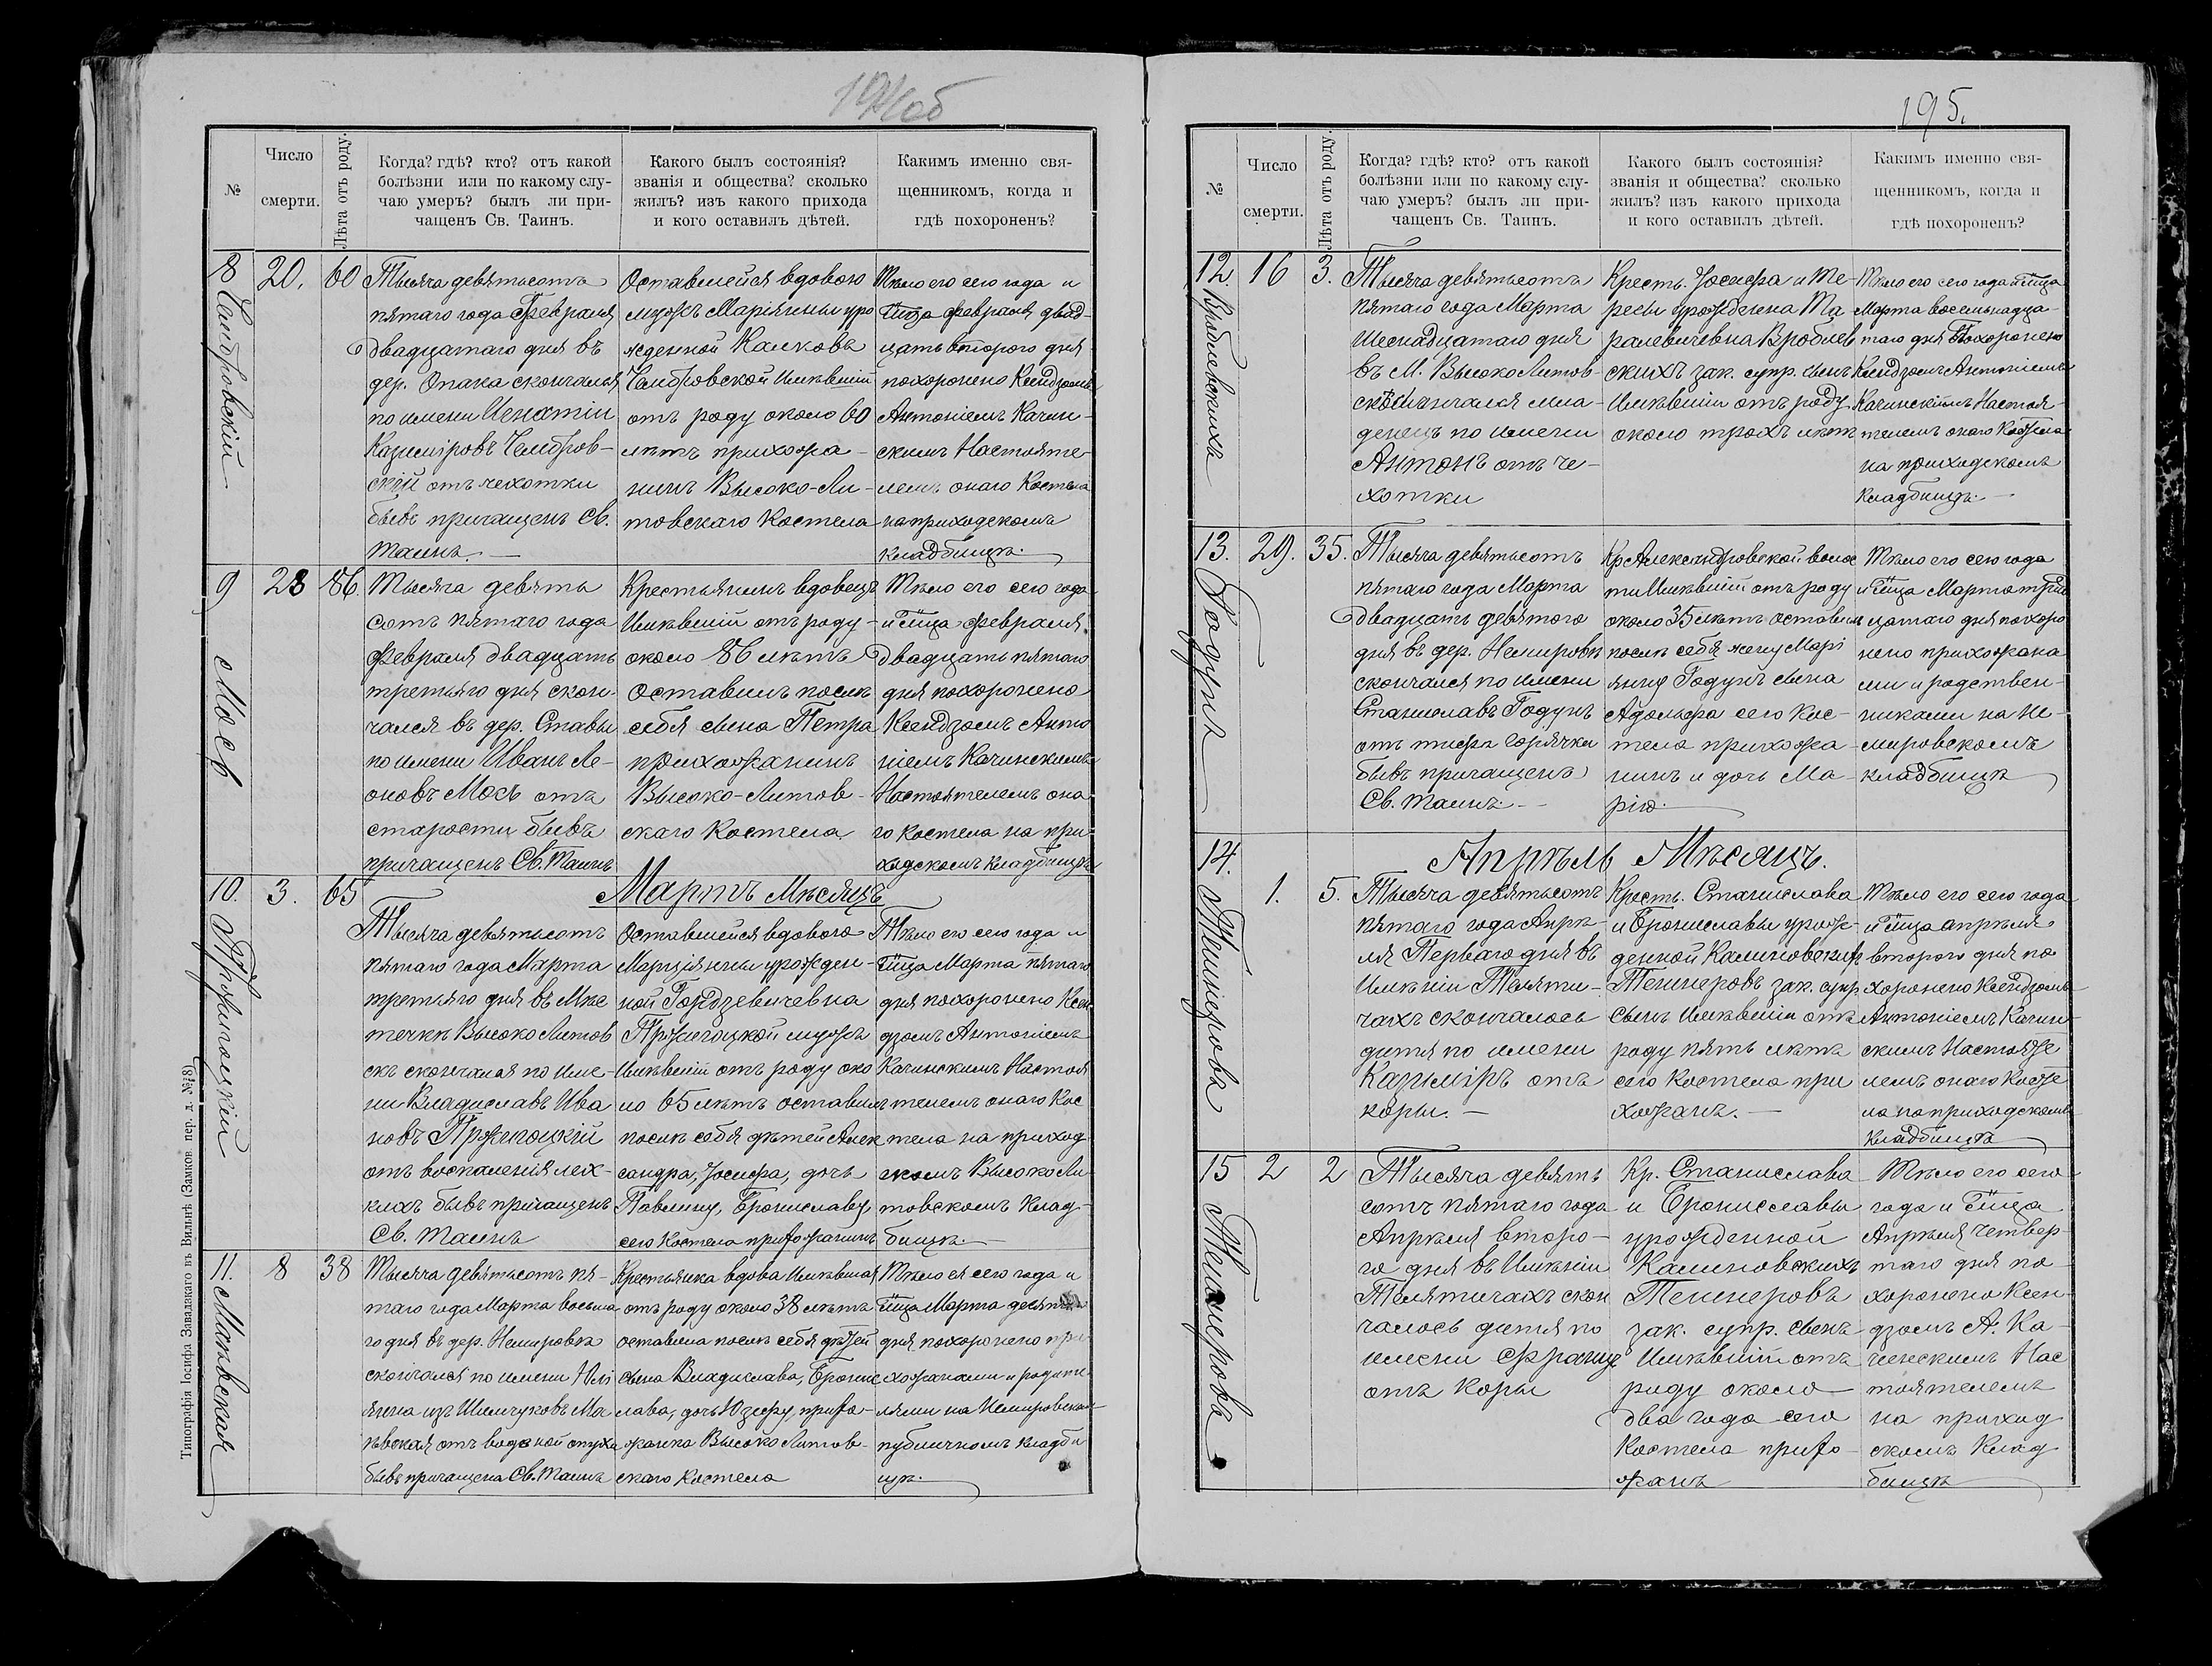 194об
№
Число смерти.
Лѣта отъ роду.
Когда? гдѣ? кто? отъ какой
болѣзни или по какому слу-
чаю умеръ? былъ ли при-
чащенъ Св. Таинъ.
Какого былъ состоянія?
званія и общества? сколько
жилъ? изъ какого прихода
и кого оставилъ дѣтей.
Какимъ именно свя-
щенникомъ, когда и
гдѣ похороненъ?
8
20.
60
Тысяча девятьсотъ
пятаго года Февраля
двадцатаго дня въ
дер. Опака скончался
по имени Игнатій
Казиміровъ Чембров-
скій отъ чехотки
бывъ причащенъ Св.
Таинъ. —
Оставшейся вдовою
мужъ Маріянны уро
жденной Калковъ
Чембровской имѣвшій
отъ роду около 60
лѣтъ прихожа-
нинъ Высоко-Ли-
товскаго Костела
Тѣло его сего года и
м̃ца февраля двад-
цать второго дня
похоронено Ксендзомъ
Антоніемъ Качин-
скимъ Настояте-
лемъ онаго Костела
на приходскомъ
кладбищѣ.
Чембровскій
9
23
86.
Тысяча девять
сотъ пятаго года
Февраля двадцать
третьяго дня скон-
чался въ дер. Ставы
по имени Иванъ Ле-
оновъ Мось отъ
старости бывъ
причащенъ Св. Таинъ
Крестьянинъ вдовецъ
Имѣвшій отъ роду
около 86 лѣтъ
Оставилъ послѣ
себя сына Петра
прихожанинъ
Высоко-Литов-
скаго Костела
Тѣло его сего года
и м̃ца февраля
двадцать пятаго
дня похоронено
Ксендзомъ Анто
ніемъ Качинскимъ
Настоятелемъ она
го костела на при-
ходскомъ кладбищѣ
Мось
10.
3.
65
Мартъ Мѣсяцъ
Тысяча девятьсотъ
пятаго года Марта
третьяго дня въ Мѣс
течкѣ Высоко Литов
скъ скончался по име-
ни Владиславъ Ива
новъ
отъ воспаленія лех-
кихъ бывъ причащенъ
Св. Таинъ
Оставшейся вдовою
Марціянны урожден-
ной Гордзевичевна
мужъ
Имѣвшій отъ роду око
ло 65 лѣтъ оставилъ
послѣ себя дѣтей Алек
сандра, Іосифа, дочь
Павлину, Брониславу,
сего Костела прихожанинъ
Тѣло его сего года и
м̃ца Марта пятаго
дня похоронено Ксен
дзомъ Антоніемъ
Качинскимъ Настоя
телемъ онаго Кос
тела на приход
скомъ Высоко Ли-
товскомъ Клад-
бищѣ.
11.
8
38
Тысяча девятьсотъ пя-
таго года Марта восьма
го дня въ дер. Немировка
скончался по имени Юлі
янна изъ Шимчуковъ Ма
ньвская отъ водяной опухи
бывъ причащена Св. Таинъ
Крестьянка вдова Имѣвшая
отъ роду около 38 лѣтъ
оставила послѣ себя дѣтей
сына Владислава, Бронис
лава, дочь Юзефу, прихо-
жанка Высоко Литов-
скаго Костела
Тѣло ея сего года и
м̃ца Марта десятаго
дня похоронено при
хожанами и родите
лями на Немировском
публичномъ кладби
щѣ.
Маньвская
Типографія Іосифа Завадзкаго въ Вильнѣ (Замков. пер. д. №18).
195.
№
Число смерти.
Лѣта отъ роду.
Когда? гдѣ? кто? отъ какой
болѣзни или по какому слу-
чаю умеръ? былъ ли при-
чащенъ Св. Таинъ.
Какого былъ состоянія?
званія и общества? сколько
жилъ? изъ какого прихода
и кого оставилъ дѣтей.
Какимъ именно свя-
щенникомъ, когда и
гдѣ похороненъ?
12.
16
3.
Тысяча девятьсотъ
пятаго года Марта
Шеснадцатаго дня
въ М. Высоко Литов-
скѣ скончался мла-
денецъ по имени
Антонъ отъ че-
хотки
Кресть. Іосифа и Те-
ресы урожденна Та-
ралевичевна Вроблев
скихъ зак. супр. сынъ
Имѣвшій отъ роду
около трохъ лѣтъ
Тѣло его сего года и м̃ца
Марта восемьнадца-
таго дня похоронено
Ксендзомъ Антоніемъ
Качинскимъ Настоя-
телемъ онаго Костела
на приходскомъ
кладбищѣ. —
Вроблевскихъ
13.
29.
35.
Тысяча девятьсотъ
пятаго года Марта
двадцать девятого
дня въ дер. Немировкѣ
скончался по имени
Станиславъ Годунъ
отъ тифа горячки
бывъ причащенъ
Св. Таинъ. —
Кр Александровской волос
ти Имѣвшій отъ роду
около 35 лѣтъ оставилъ
послѣ себя жену Марі
янну Годунъ сына
Адольфа сего Кос-
тела прихожа-
нинъ и дочь Ма-
рію.
Тѣло его сего года
и м̃ца Марта трид
цатаго дня похоро
нено прихожана
ми и родствен-
никами на Не-
мировскомъ
кладбищѣ
Годунъ
14.
Апрѣль Мѣсяцъ.
1.
5.
Тысяча девятьсотъ
пятаго года Апрѣ-
ля Перваго дня въ
Имѣніи Теляти-
чахъ скончалось
дитя по имени
Казиміръ отъ
коры. —
Кресть. Станислава
и Брониславы урож-
денной Калиновскихъ
Теннеровъ зак. супр.
сынъ Имѣвшій отъ
роду пять лѣтъ
сего Костела при
хожанъ. —
Тѣло его сего года
и м̃ца апрѣля
второго дня по
хоронено Ксендзомъ
Антоніемъ Качин-
скимъ Настояте
лемъ онаго Косте
ла на приходскомъ
кладбищѣ
15
2
2
Тысяча девять
сотъ пятаго года
Апрѣля второ-
го дня въ Имѣніи
Телятичахъ скон
чалось дитя по
имени Францъ
отъ коры
Кр. Станислава
и Брониславы
урожденной
Калиновскихъ
Теннеровъ
зак. супр. сынъ
Имѣвшій отъ
роду около
два года сего
Костела прихо-
жанъ
Тѣло его сего
года и м̃ца
Апрѣля четвер-
таго дня по-
хоронено Ксен-
дзомъ А. Ка-
чинскимъ Нас
тоятелемъ
на приход
скомъ Клад
бищѣ